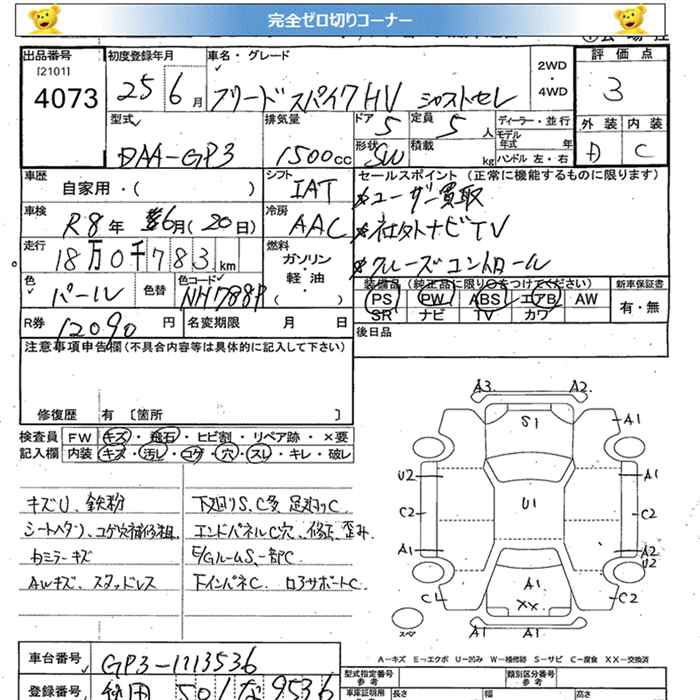 完全ゼロ切りコーナー
出品番号 初度登録年月 車名・グレード 2WD・4WD 評価点
[2101]
4073 25 6月 フリードスパイクHV ジャストセレ 3
型式 排気量 ドア 定員 ディーラー・並行 外装 内装
5 5人 モデル年式 年
DAA-GP3 1500cc 形状 SW 積載 kg ハンドル 左・右 D C
車歴 シフト セールスポイント (正常に機能するものに限ります)
自家用・( ) IAT ユーザー買取
車検 R8年 6月(20日) 冷房 AAC 社外ナビTV
走行 18万0千783km 燃料 ガソリン・軽油・( ) クルーズコントロール
色 パール 色替 色コード NH788P
装備品 (純正品に限り○をつけてください) 新車保証書
PS PW ABS エアB AW 有・無
SR ナビ TV カワ
R券 12090円 名変期限 月 日 後日品
注意事項申告欄(不具合内容等は具体的に記入して下さい)
修復歴 有 〔箇所 〕
検査員記入欄 FW キズ・飛石・ヒビ割・リペア跡・×要
内装 キズ・汚し・コゲ・穴・スレ・キレ・破レ
キズU、鉄粉 下廻りS、C多 足廻りC
シートヘタリ、コゲ穴補修粗 エンドパネルC穴、修正、歪み
カミラーキズ E/GルームS、一部C
AWキズ、スタッドレス 下インパネC ロアサポートC
A3 A2
S1 A1
U2 A1
C2 U1 C2
A1 A2
U2
C1 A1 C2
XX
スペア A1 A1
A-キズ E-エクボ U-凹み W-補修跡 S-サビ C-腐食 XX-交換済
車台番号 GP3-1113536
型式指定番号 参考 類別区分番号 参考
登録番号 秋田 501 な 9536
車庫証明用 長さ 幅 高さ